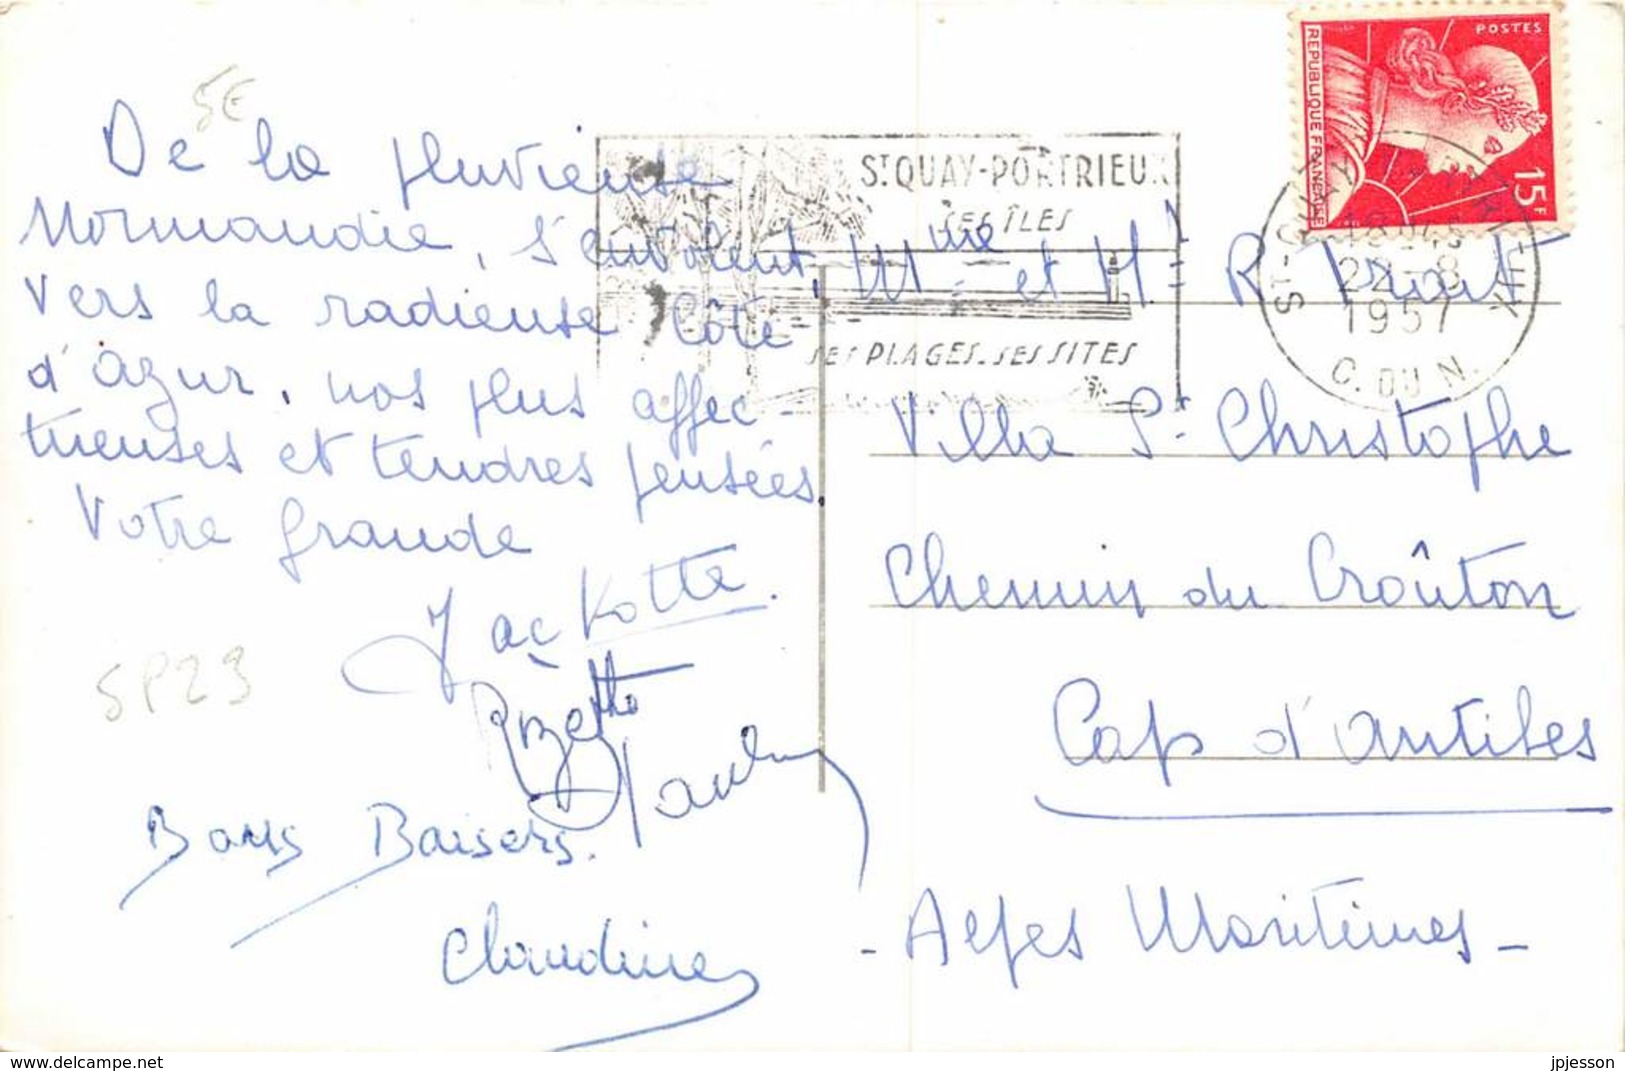 5E
De la pluvieuse
Normandie, s'envolent,
vers la radieuse Côte
d'azur, nos plus affec-
tueuses et tendres pensées.
Votre grande
Jackotte.
Bons Baisers.
Claudine
5P23
ST QUAY-PORTRIEUX
SES ÎLES
SES PLAGES. SES SITES
POSTES
REPUBLIQUE FRANÇAISE
15F
22-8
1957
C. DU N.
Mme et Mr R.
Villa St Christophe
Chemin du Croûton
Cap d'Antibes
- Alpes Maritimes -
www.delcampe.net
jpjesson